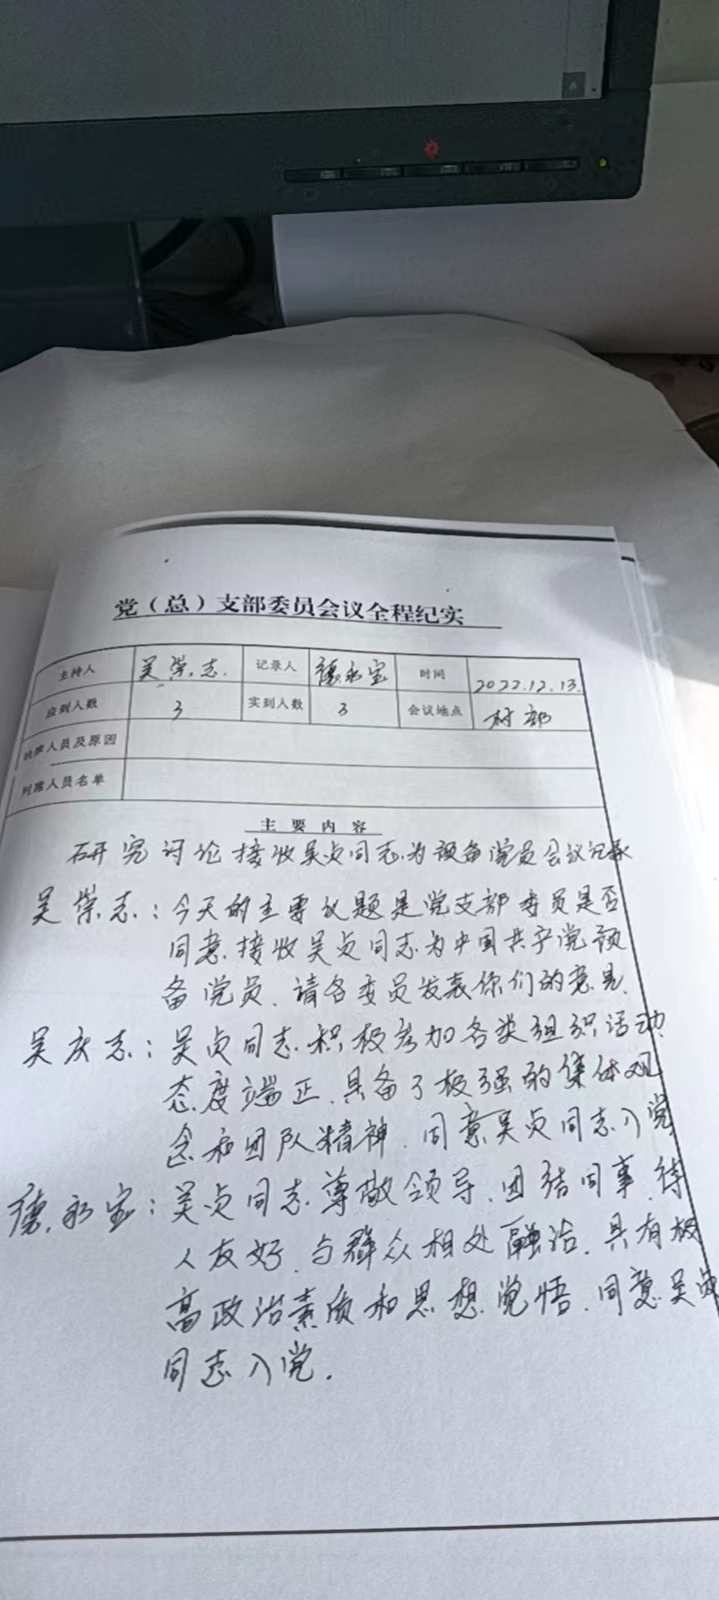 党（总）支部委员会议全程纪实
主持人 吴崇志 记录人 德永宝 时间 2022.12.13.
应到人数 3 实到人数 3 会议地点 村部
缺席人员及原因
列席人员名单
主要内容
研究讨论接收吴贞同志为预备党员会议记录
吴崇志：今天的主要议题是党支部委员是否
同意接收吴贞同志为中国共产党预
备党员，请各委员发表你们的意见．
吴庆志：吴贞同志积极参加各类组织活动，
态度端正，具备了极强的集体观
念和团队精神，同意吴贞同志入党
德永宝：吴贞同志尊敬领导，团结同事，待
人友好，与群众相处融洽，具有极
高政治素质和思想觉悟，同意吴贞
同志入党．